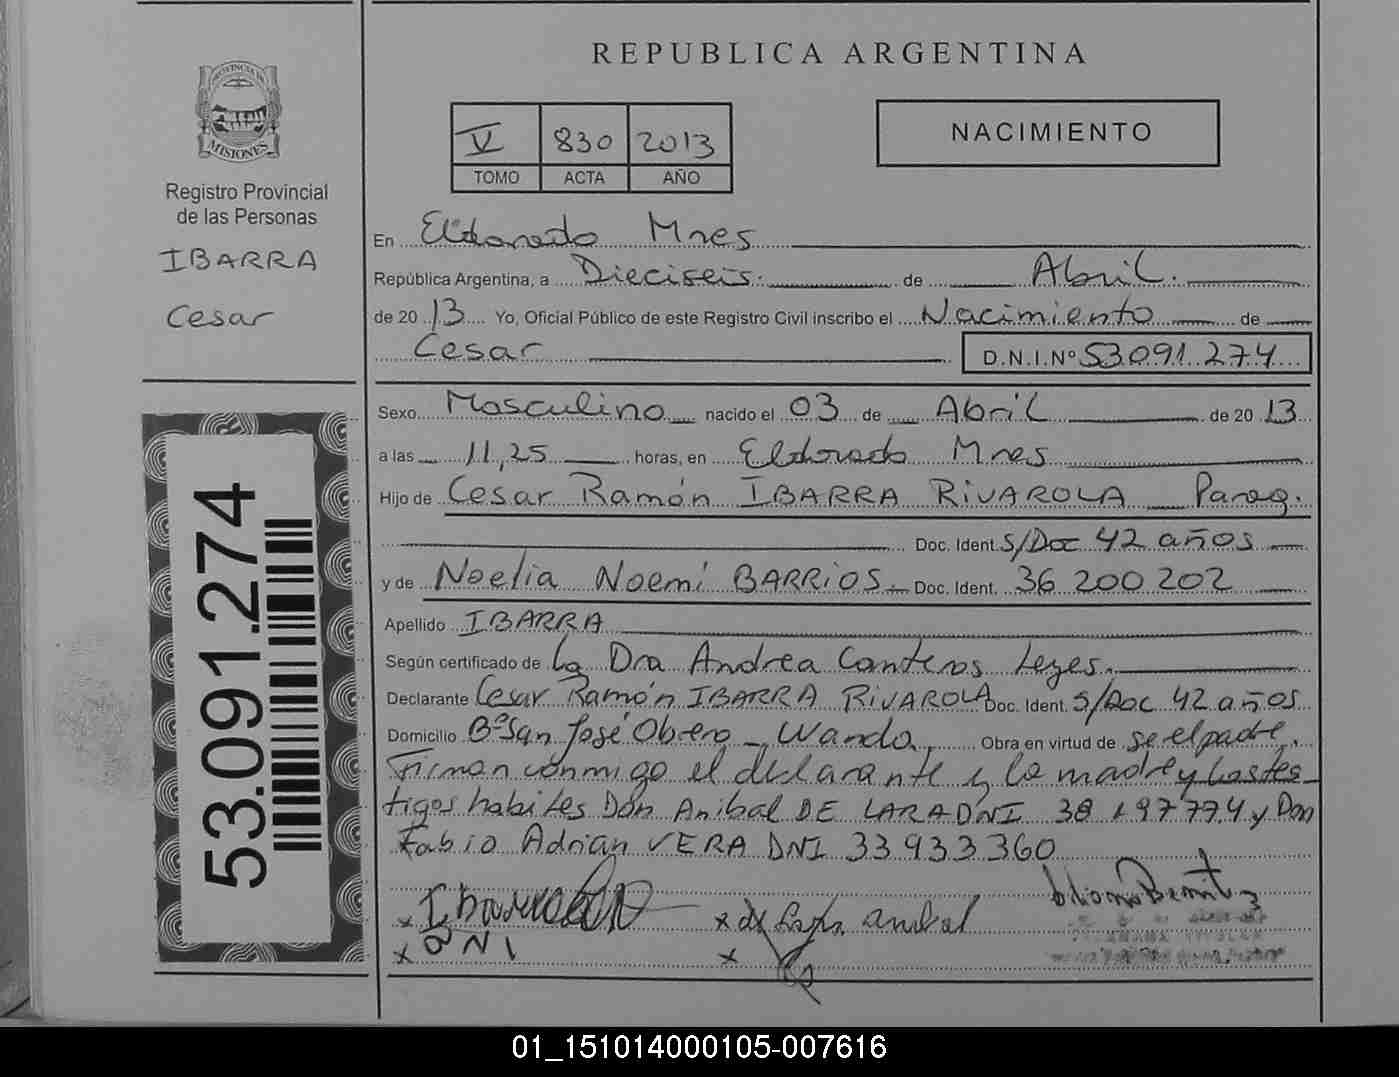 REPUBLICA ARGENTINA
PROVINCIA DE
MISIONES
Registro Provincial
de las Personas
IBARRA
Cesar
V 830 2013
TOMO ACTA AÑO
NACIMIENTO
En Eldorado Mnes
República Argentina, a Dieciseis. de Abril.
de 20 13 Yo, Oficial Público de este Registro Civil inscribo el Nacimiento de
Cesar D.N.I.Nº 53091.274
Sexo Masculino nacido el 03 de Abril de 20 13
a las 11,25 horas, en Eldorado Mnes
Hijo de Cesar Ramón IBARRA RIVAROLA Parag.
Doc. Ident. S/Doc 42 años
y de Noelia Noemí BARRIOS Doc. Ident. 36 200 202
Apellido IBARRA
Según certificado de La Dra Andrea Canteros Leyes.
Declarante Cesar Ramón IBARRA RIVAROLA Doc. Ident. S/Doc 42 años
Domicilio Bº San José Obrero - Wanda, Obra en virtud de se el padre.
Firman conmigo el declarante y la madre y los tes-
tigos habiles Don Anibal DE LARA DNI 38 197 774 y Don
Fabio Adrian VERA DNI 33 933 360
53.091.274
x Ibarra
x de Lara anibal
x
x
01_151014000105-007616